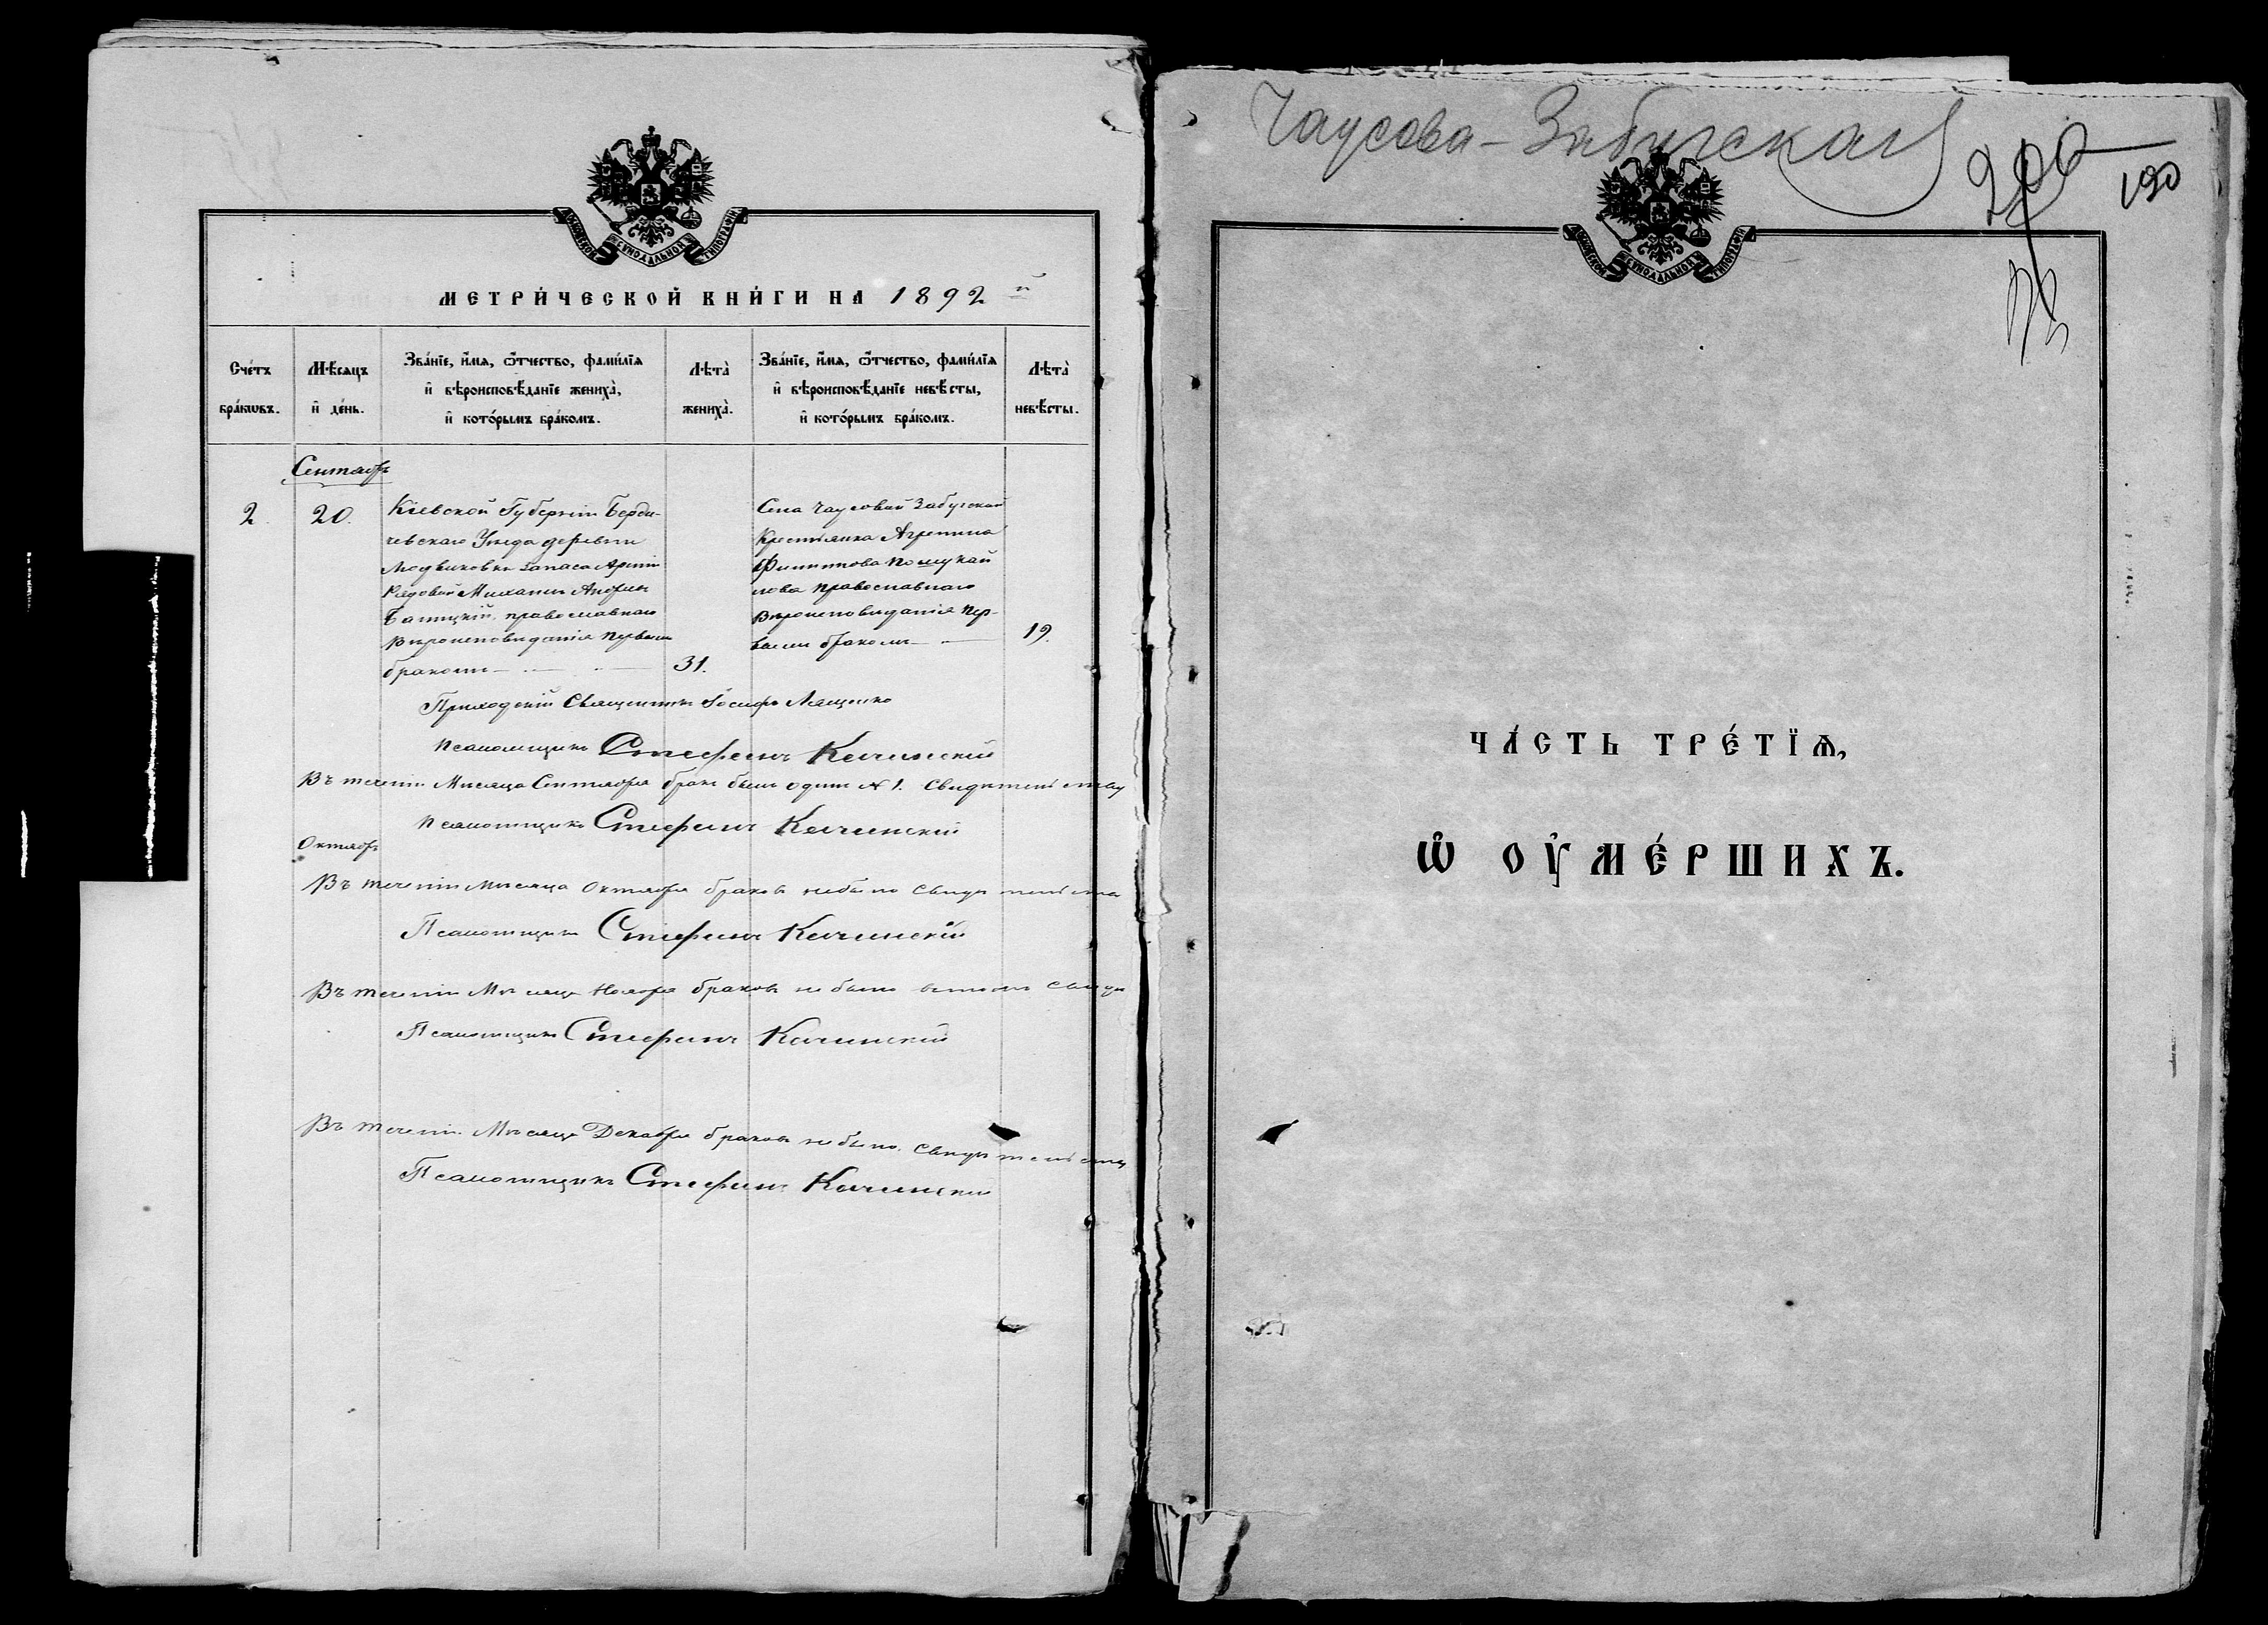 МОСКОВСКОЙ СѴНОДАЛЬНОЙ ТИПОГРАФІИ
МЕТРИ́ЧЕСКОЙ КНИ́ГИ НА 1892 й
Сче́тъ бра́кѡвъ.
Мѣ́сяцъ и҆ де́нь.
Зва́нїе, и҆́мѧ, ѻ҆́тчество, фами́лїѧ
и҆ вѣроисповѣ́данїе жениха̀,
и҆ кото́рымъ бра́комъ.
Лѣта̀ жениха̀.
Зва́нїе, и҆́мѧ, ѻ҆́тчество, фами́лїѧ
и҆ вѣроисповѣ́данїе невѣ́сты,
и҆ кото́рымъ бра́комъ.
Лѣта̀ невѣ́сты.
Сентябрь
2. 20.
Кіевской Губерніи Берди-
чевскаго Уѣзда деревни
запаса Арміи
Рядовой Михаилъ
православнаго
Вѣроисповѣданія первымъ
бракомъ 31.
Села Чаусовой Забугской
Крестьянка Агрепина
Филиппова
православнаго
Вѣроисповѣданія пер-
вымъ бракомъ 19.
Приходскій Священникъ Іосифъ Лященко
Псаломщикъ Стефанъ Качинскій
Въ теченіи Мѣсяца Сентября бракъ былъ одинъ № 1.
Псаломщикъ Стефанъ Качинскій
Октябрь
Въ теченіи Мѣсяца Октября браковъ небыло
Псаломщикъ Стефанъ Качинскій
Въ теченіи Мѣсяца Ноября браковъ не было
Псаломщикъ Стефанъ Качинскій
Въ теченіи Мѣсяца Декабря браковъ не было.
Псаломщикъ Стефанъ Качинскій
Чаусова-Забугская
190
МОСКОВСКОЙ СѴНОДАЛЬНОЙ ТИПОГРАФІИ
ЧА́СТЬ ТРЕ́ТЇѦ,
Ѽ ОУ҆МЕ́РШИХЪ.